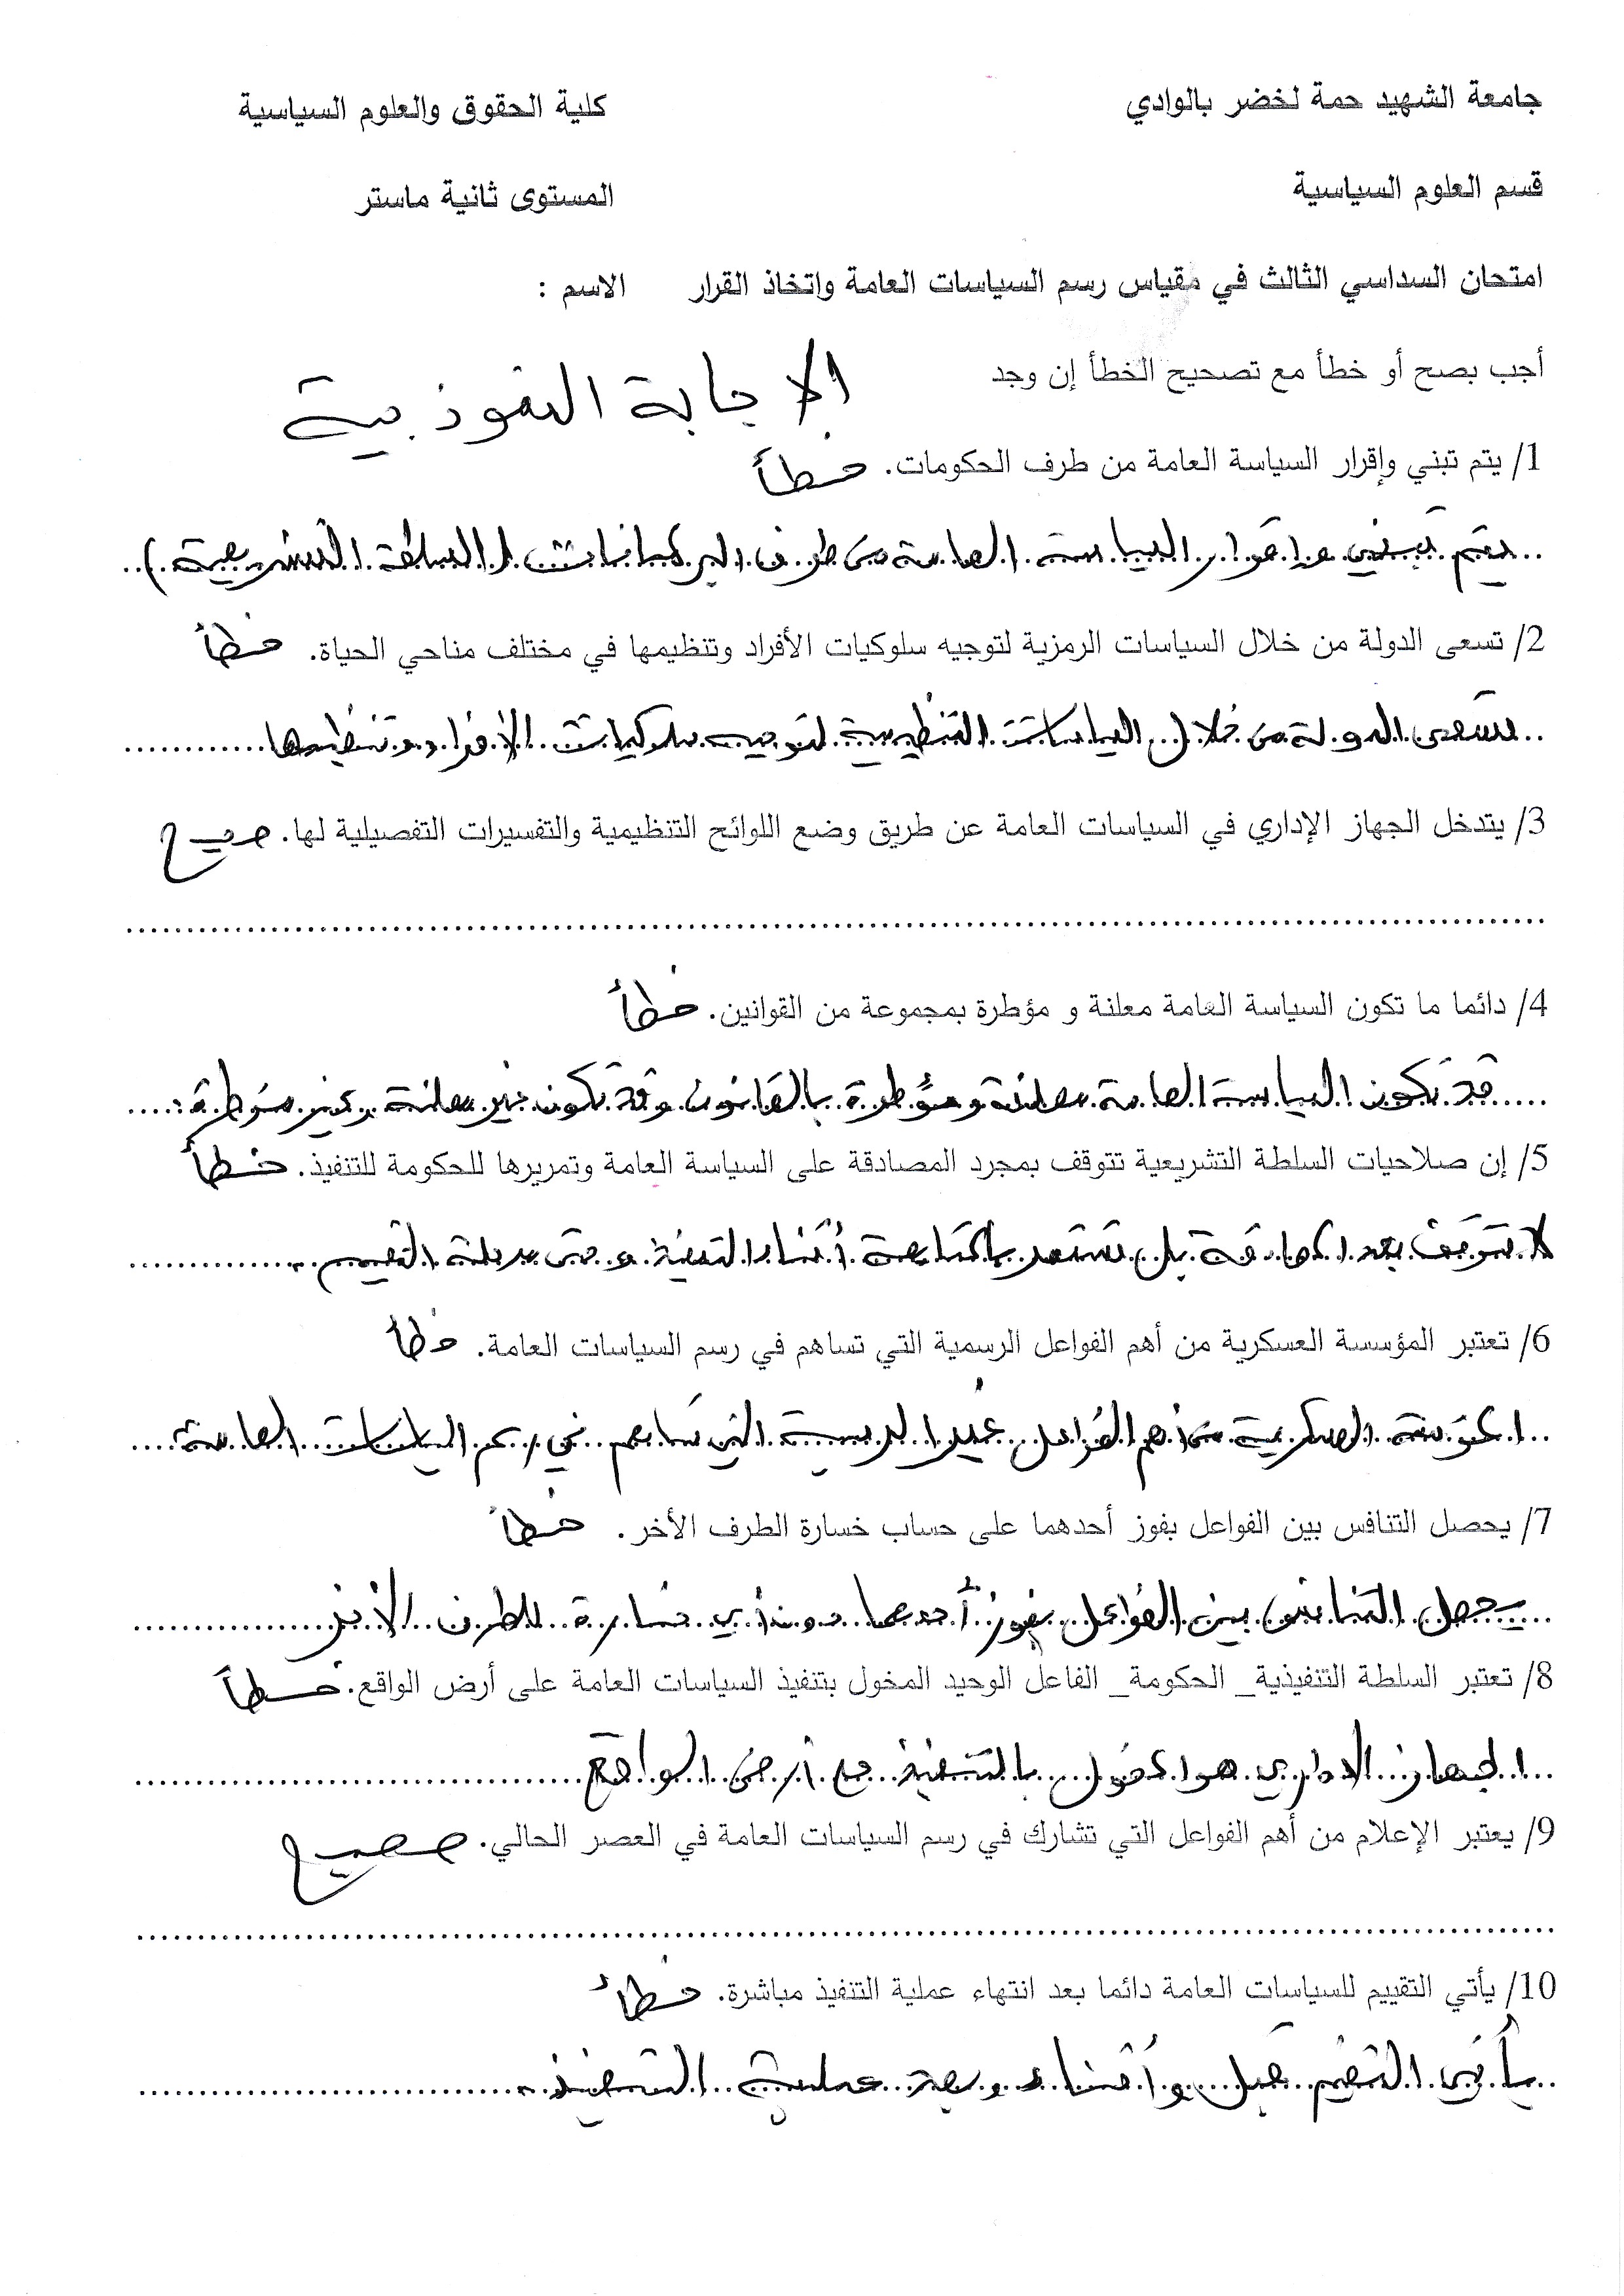 جامعة الشهيد حمة لخضر بالوادي كلية الحقوق والعلوم السياسية
قسم العلوم السياسية المستوى ثانية ماستر
امتحان السداسي الثالث في مقياس رسم السياسات العامة واتخاذ القرار الاسم :
أجب بصح أو خطأ مع تصحيح الخطأ إن وجد
الاجابة النموذجية
1/ يتم تبني وإقرار السياسة العامة من طرف الحكومات. خطأ
يتم تبني واقرار السياسة العامة من طرف البرلمانات (السلطة التشريعية)
2/ تسعى الدولة من خلال السياسات الرمزية لتوجيه سلوكيات الأفراد وتنظيمها في مختلف مناحي الحياة. خطأ
تسعى الدولة من خلال السياسات التنظيمية لتوجيه سلوكيات الأفراد وتنظيمها
3/ يتدخل الجهاز الإداري في السياسات العامة عن طريق وضع اللوائح التنظيمية والتفسيرات التفصيلية لها. صحيح
4/ دائما ما تكون السياسة العامة معلنة و مؤطرة بمجموعة من القوانين. خطأ
قد تكون السياسة العامة معلنة ومؤطرة بالقانون وقد تكون غير معلنة وغير مؤطرة
5/ إن صلاحيات السلطة التشريعية تتوقف بمجرد المصادقة على السياسة العامة وتمريرها للحكومة للتنفيذ. خطأ
لا تتوقف بعد المصادقة بل تستمر بالمتابعة أثناء التنفيذ و حتى مرحلة التقييم
6/ تعتبر المؤسسة العسكرية من أهم الفواعل الرسمية التي تساهم في رسم السياسات العامة. خطأ
المؤسسة العسكرية من أهم الفواعل غير الرسمية التي تساهم في رسم السياسات العامة
7/ يحصل التنافس بين الفواعل بفوز أحدهما على حساب خسارة الطرف الأخر. خطأ
يحصل التنافس بين الفواعل بفوز أحدهما دون أي خسارة للطرف الأخر
8/ تعتبر السلطة التنفيذية_ الحكومة_ الفاعل الوحيد المخول بتنفيذ السياسات العامة على أرض الواقع. خطأ
الجهاز الاداري هو المخول بالتنفيذ على أرض الواقع
9/ يعتبر الإعلام من أهم الفواعل التي تشارك في رسم السياسات العامة في العصر الحالي. صحيح
10/ يأتي التقييم للسياسات العامة دائما بعد انتهاء عملية التنفيذ مباشرة. خطأ
يأتي التقييم قبل و أثناء و بعد عملية التنفيذ